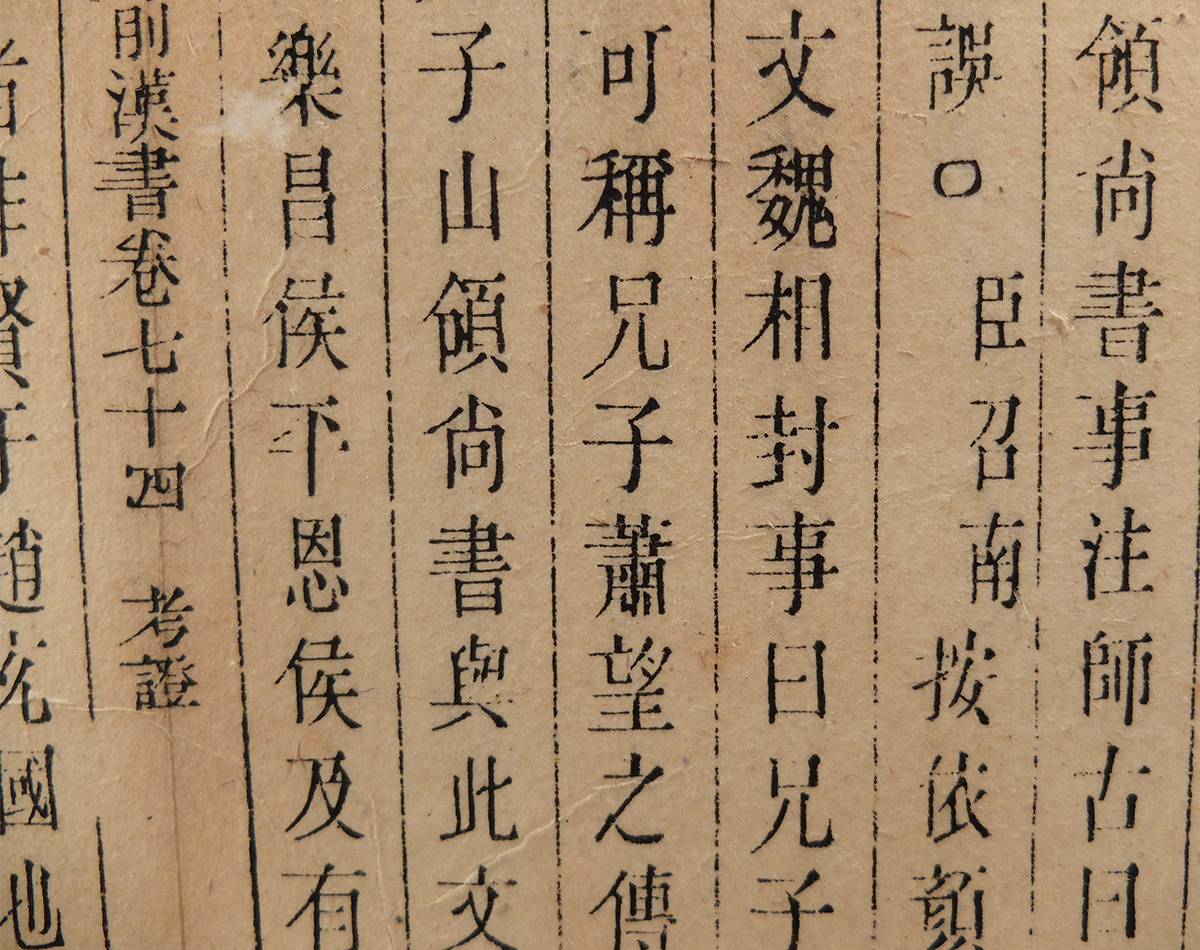 領尚書事注師古曰
誤〇臣召南按依顏
文魏相封事曰兄子
可稱兄子蕭望之傳
子山領尚書與此文
樂昌侯平恩侯及有
前漢書卷七十四 考證
賢于趙充國也